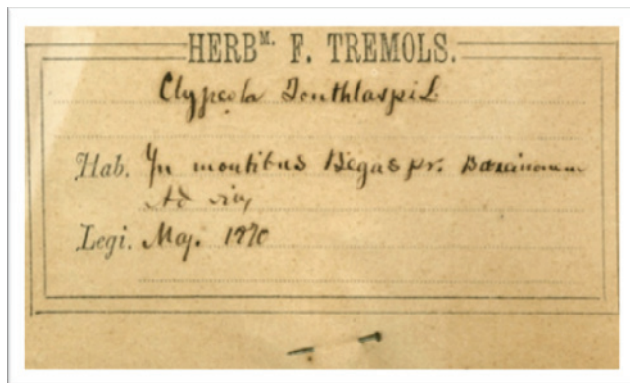 HERBᴹ. F. TREMOLS.
Clypeola Jonthlaspi L.
Hab. In montibus Begas pr. Barcinonem
Ad
Legi. Maj. 1870